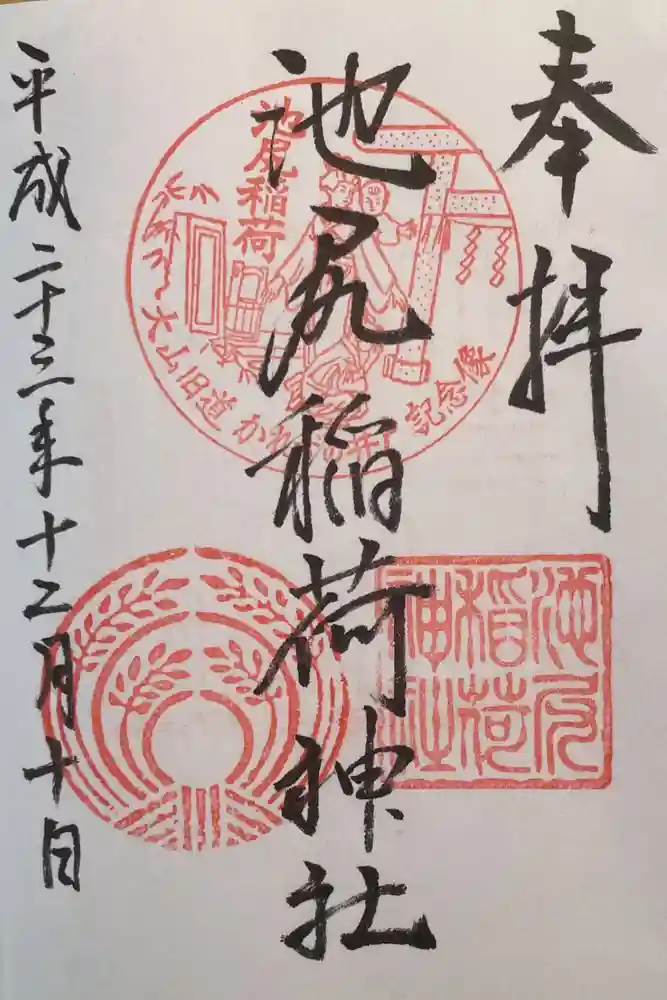 奉拝
池尻稲荷神社
平成二十三年十二月十日
池尻稲荷
大山旧道 かれずの井戸 記念像
池尻
稲荷
神社